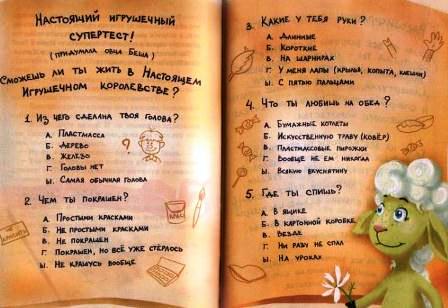 Настоящий игрушечный
супертест!
(придумала овца Беша)
Сможешь ли ты жить в Настоящем
Игрушечном королевстве?
1. Из чего сделана твоя голова?
А. Пластмасса
Б. Дерево
В. Железо
Г. Головы нет
Ы. Самая обычная голова
2. Чем ты покрашен?
А. Простыми красками
Б. Не простыми красками
В. Не покрашен
Г. Покрашен, но всё уже стёрлось
Ы. Не крашусь вообще
Не красить
3. Какие у тебя руки?
А. Длинные
Б. Короткие
В. На шарнирах
Г. У меня лапы (крылья, копыта, клешни)
Ы. С пятью пальцами
4. Что ты любишь на обед?
А. Бумажные котлеты
Б. Искусственную траву (ковёр)
В. Пластмассовые пирожки
Г. Вообще не ем никогда
Ы. Всякую вкуснятину
5. Где ты спишь?
А. В ящике
Б. В картонной коробке
В. Везде
Г. Ни разу не спал
Ы. На уроках